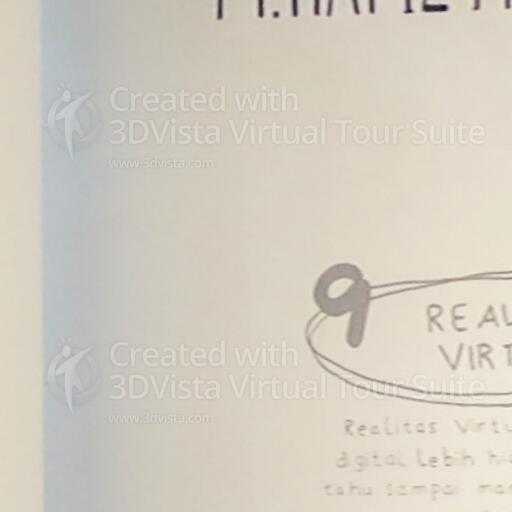 Created with
3DVista Virtual Tour Suite
www.3dvista.com
9
REAL
VIRT
Created with
3DVista Virtual Tour Suite
www.3dvista.com
Realitas Virtu
digital lebih
tahu sampai